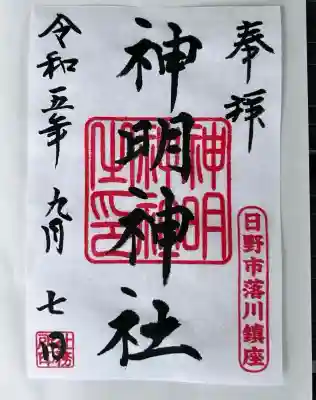 奉拝
日野市落川鎮座
神明神社
神明神社之印
令和五年九月七日